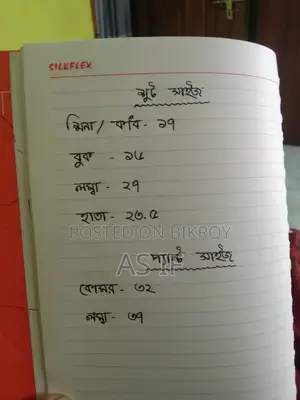 SILKFLEX
স্যুট সাইজ
সিনা / কাঁধ - ১৭
বুক - ১৯
লম্বা - ২৭
হাতা - ২৩.৫
POSTED ON BIKROY
ASIF
প্যান্ট সাইজ
কোমর - ৩২
লম্বা - ৩৭